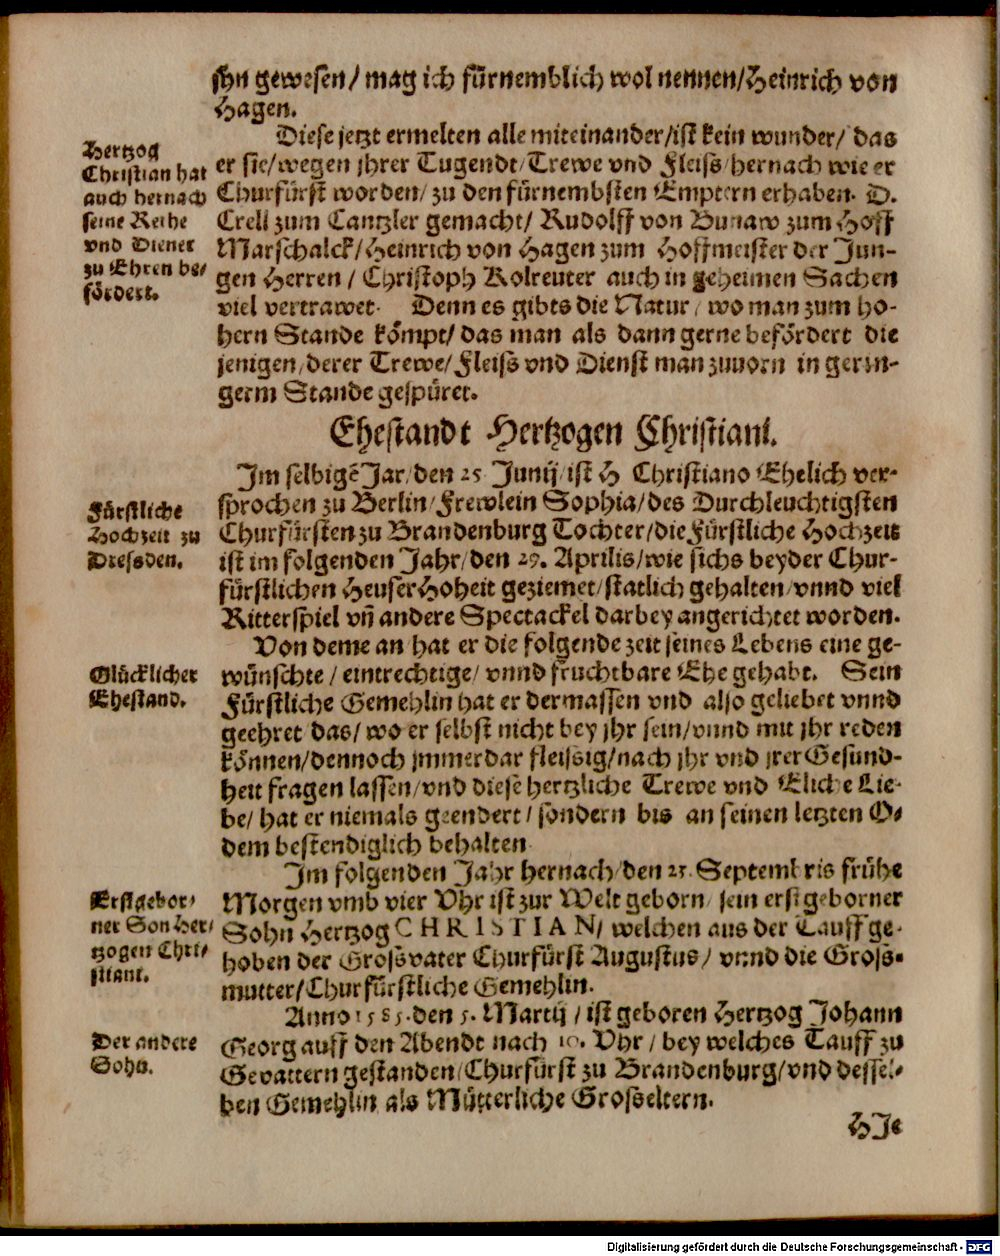 jhn gewesen/ mag ich fürnemblich wol nennen/Heinrich von
Hagen.
Diese jetzt ermelten alle miteinander/ist kein wunder/ das
er sie/wegen jhrer Tugendt/Trewe vnd Fleiss/hernach wie er
Churfürst worden/ zu den fürnembsten Emptern erhaben. D.
Crell zum Cantzler gemacht/ Rudolff von Bunaw zum Hoff
Marschalck/Heinrich von Hagen zum Hoffmeister der Jun-
gen Herren / Christoph Kolreuter auch in geheimen Sachen
viel vertrawet. Denn es gibts die Natur / wo man zum ho-
hern Stande kömpt/ das man als dann gerne befördert die
jenigen/derer Trewe/ Fleiss vnd Dienst man zuuorn in gerin-
germ Stande gespüret.
Hertzog
Christian hat
auch hernach
seine Rethe
vnd Diener
zu Ehren be/
fördert.
Ehestandt Hertzogen Christiani.
Im selbigē Jar/den 25 Junij/ist H Christiano Ehelich ver-
sprochen zu Berlin/Frewlein Sophia/des Durchleuchtigsten
Churfürsten zu Brandenburg Tochter/die Fürstliche Hochzeit
ist im folgenden Jahr/den 29. Aprilis/wie sichs beyder Chur-
fürstlichen Heuser Hoheit geziemet/statlich gehalten/vnnd viel
Ritterspiel vñ andere Spectackel darbey angerichtet worden.
Fürstliche
Hochzeit zu
Dressden.
Von deme an hat er die folgende zeit seines Lebens eine ge-
wünschte / eintrechtige/ vnnd fruchtbare Ehe gehabt. Sein
Fürstliche Gemehlin hat er dermassen vnd also geliebet vnnd
geehret das/ wo er selbst nicht bey jhr sein/vnnd mit jhr reden
können/dennoch jmmerdar fleissig/nach jhr vnd jrer Gesund-
heit fragen lassen/vnd diese hertzliche Trewe vnd Eliche Lie-
be/ hat er niemals geendert / sondern bis an seinen letzten O/
dem bestendiglich behalten
Glücklicher
Ehestand.
Im folgenden Jahr hernach/den 23. Septembris frühe
Morgen vmb vier Vhr ist zur Welt geborn/ sein erstgeborner
Sohn Hertzog CHRISTIAN/ welchen aus der Tauff ge-
hoben der Grossvater Churfürst Augustus/ vnnd die Gross-
mutter/Churfürstliche Gemehlin.
Erstgebor/
ner Son Her/
tzogen Chri/
stiani.
Anno 1585.den 5. Martij / ist geboren Hertzog Johann
Georg auff den Abendt nach 10. Vhr / bey welches Tauff zu
Gevattern gestanden/Churfürst zu Brandenburg/vnd dessel-
ben Gemehlin als Mütterliche Grosseltern.
Der andere
Sohn.
HJe
Digitalisierung gefördert durch die Deutsche Forschungsgemeinschaft - DFG